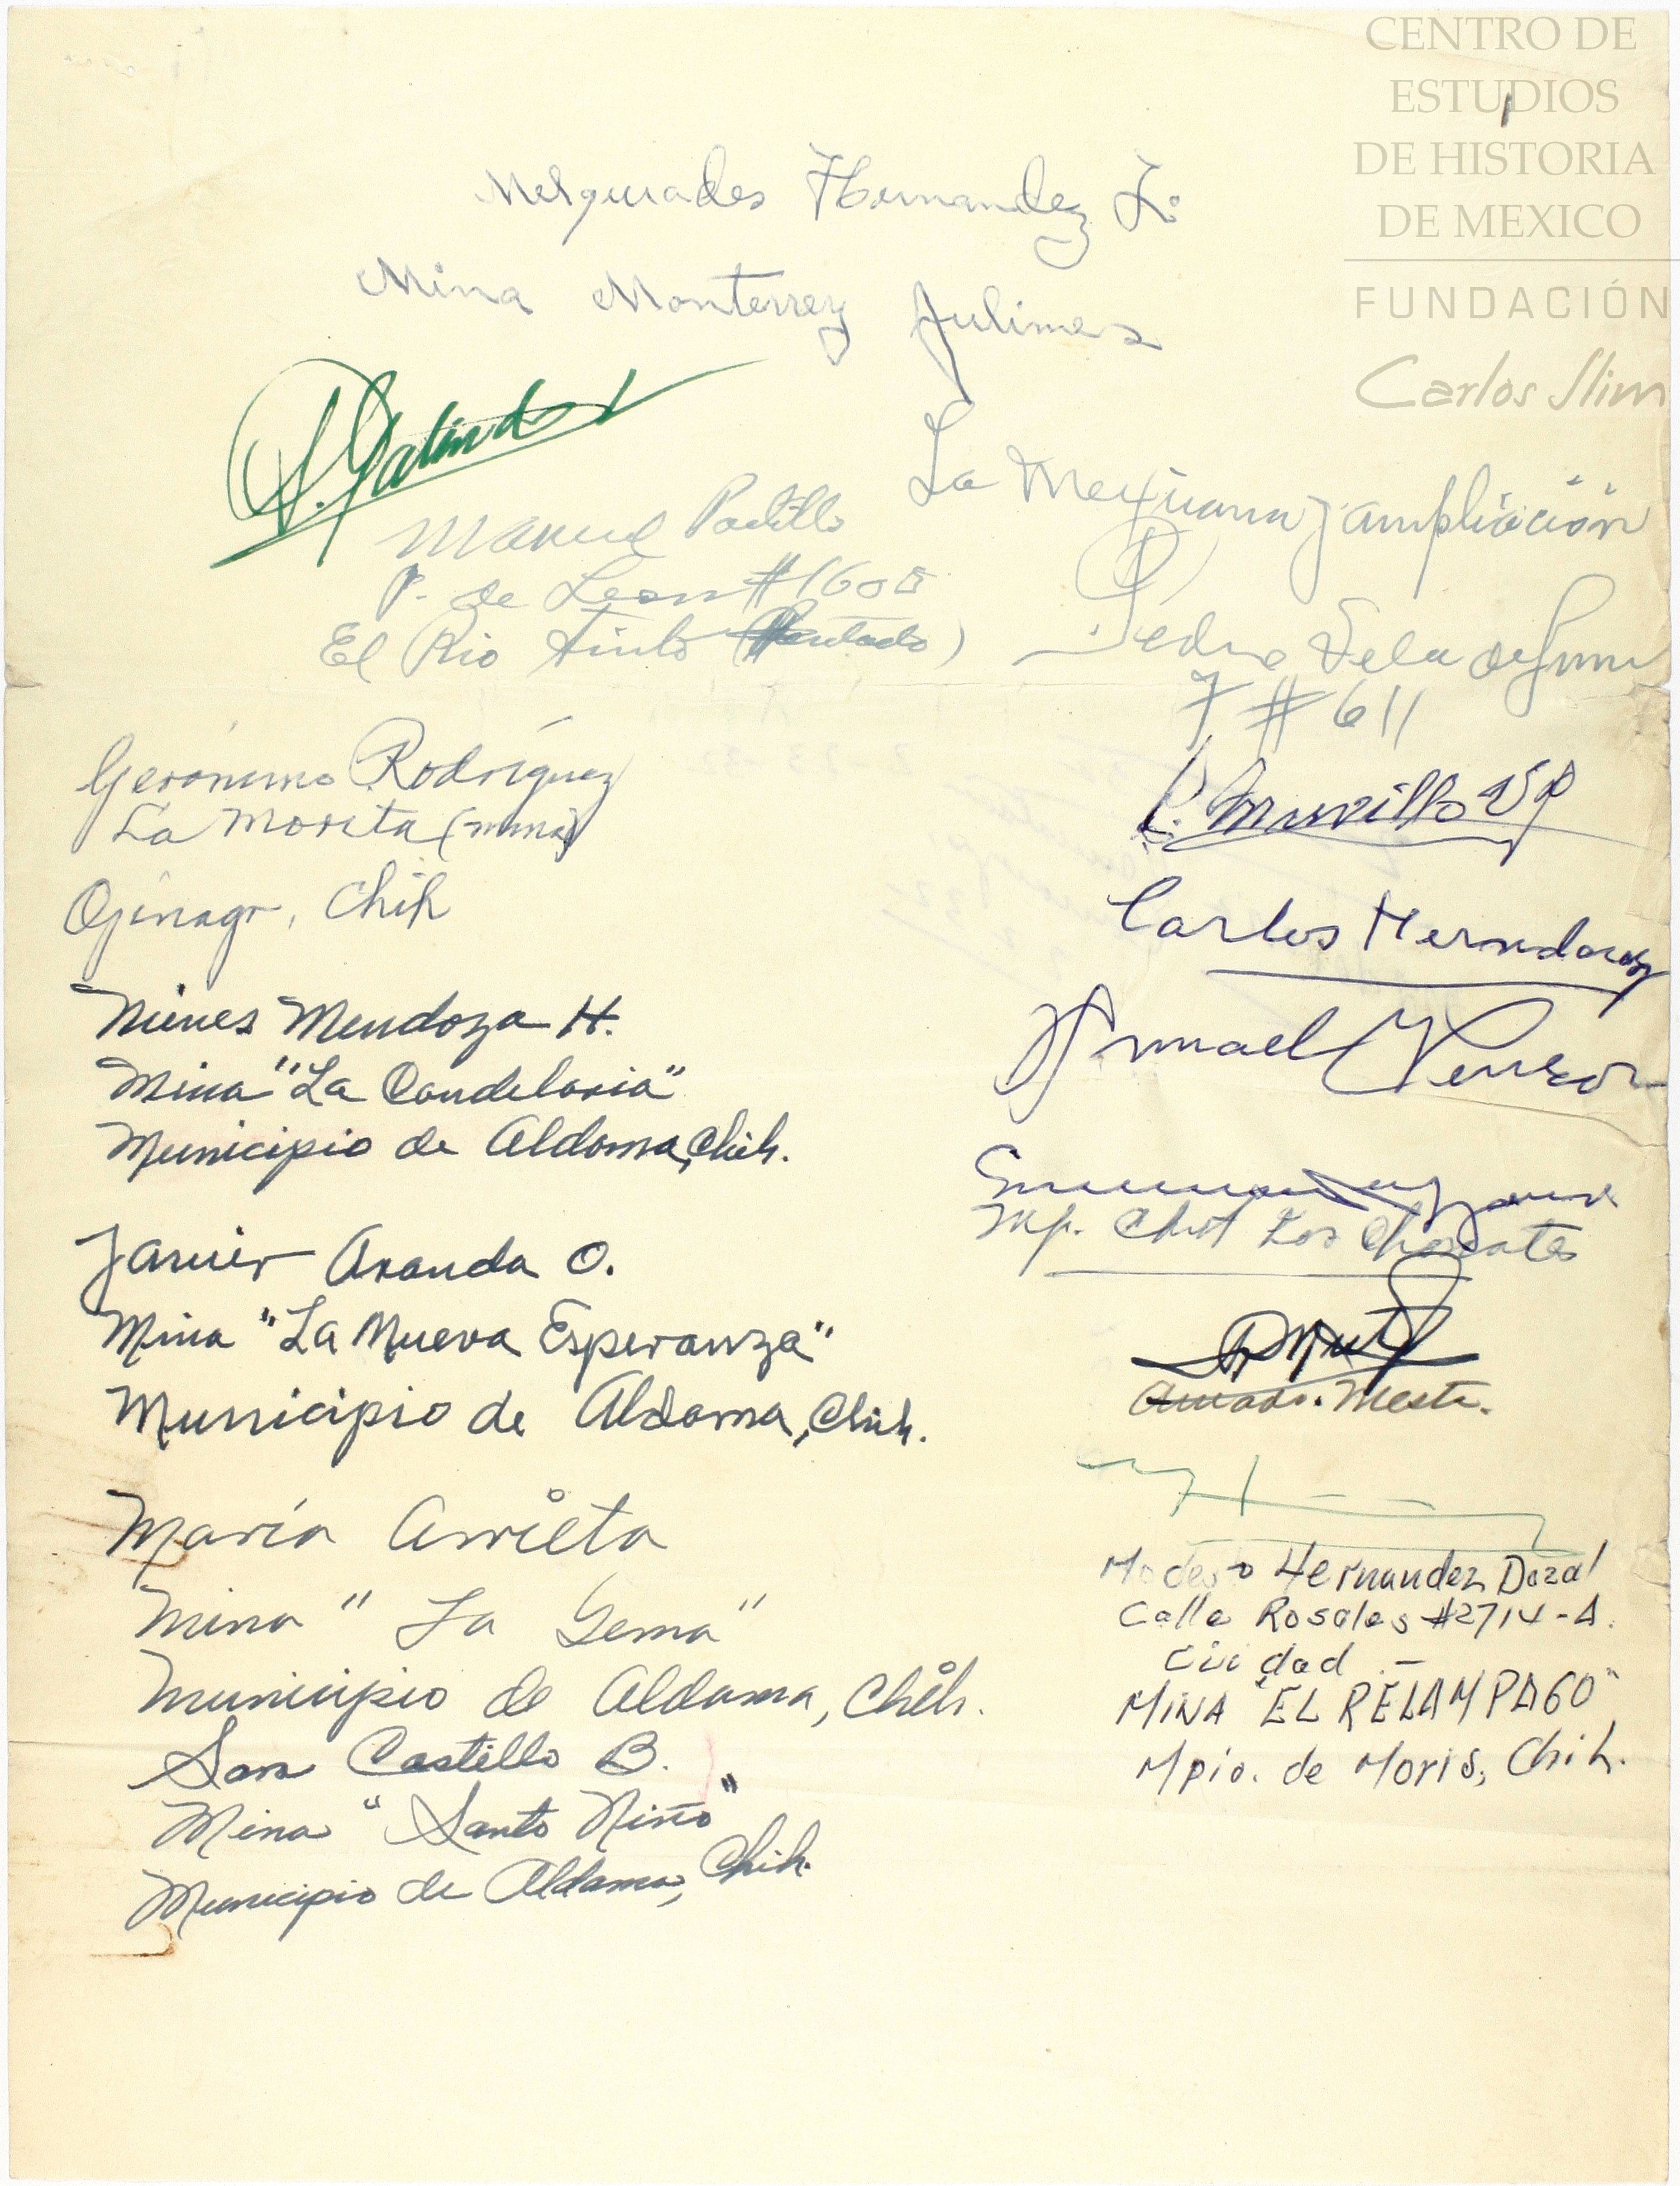 CENTRO DE
ESTUDIOS
DE HISTORIA
DE MEXICO
FUNDACIÓN
Carlos Slim
Melquiades Hernandez L.
Mina Monterrey Julimes
S. Galindo
La Mexicana y ampliación
Manuel Padilla
P. de Leon #1608
El Rio Tinto
Pedro
7 # 611
Geronimo Rodríguez
La Morita (mina)
Ojinaga, Chih
Murillo
Carlos Hernandez
Nieves Mendoza H.
Mina "La Candelaria"
Municipio de Aldama, Chih.
Ismael
Mp. Los
Javier Aranda O.
Mina "La Nueva Esperanza"
Municipio de Aldama, Chih.
Amado Mesta.
María Arrieta
Mina "La Gema"
Municipio de Aldama, Chih.
Castillo B.
Mina "Santo Niño"
Municipio de Aldama, Chih.
Modesto Hernandez Dozal
Calle Rosales #2714-A.
Ciudad.-
MINA "EL RELAMPAGO"
Mpio. de Moris, Chih.